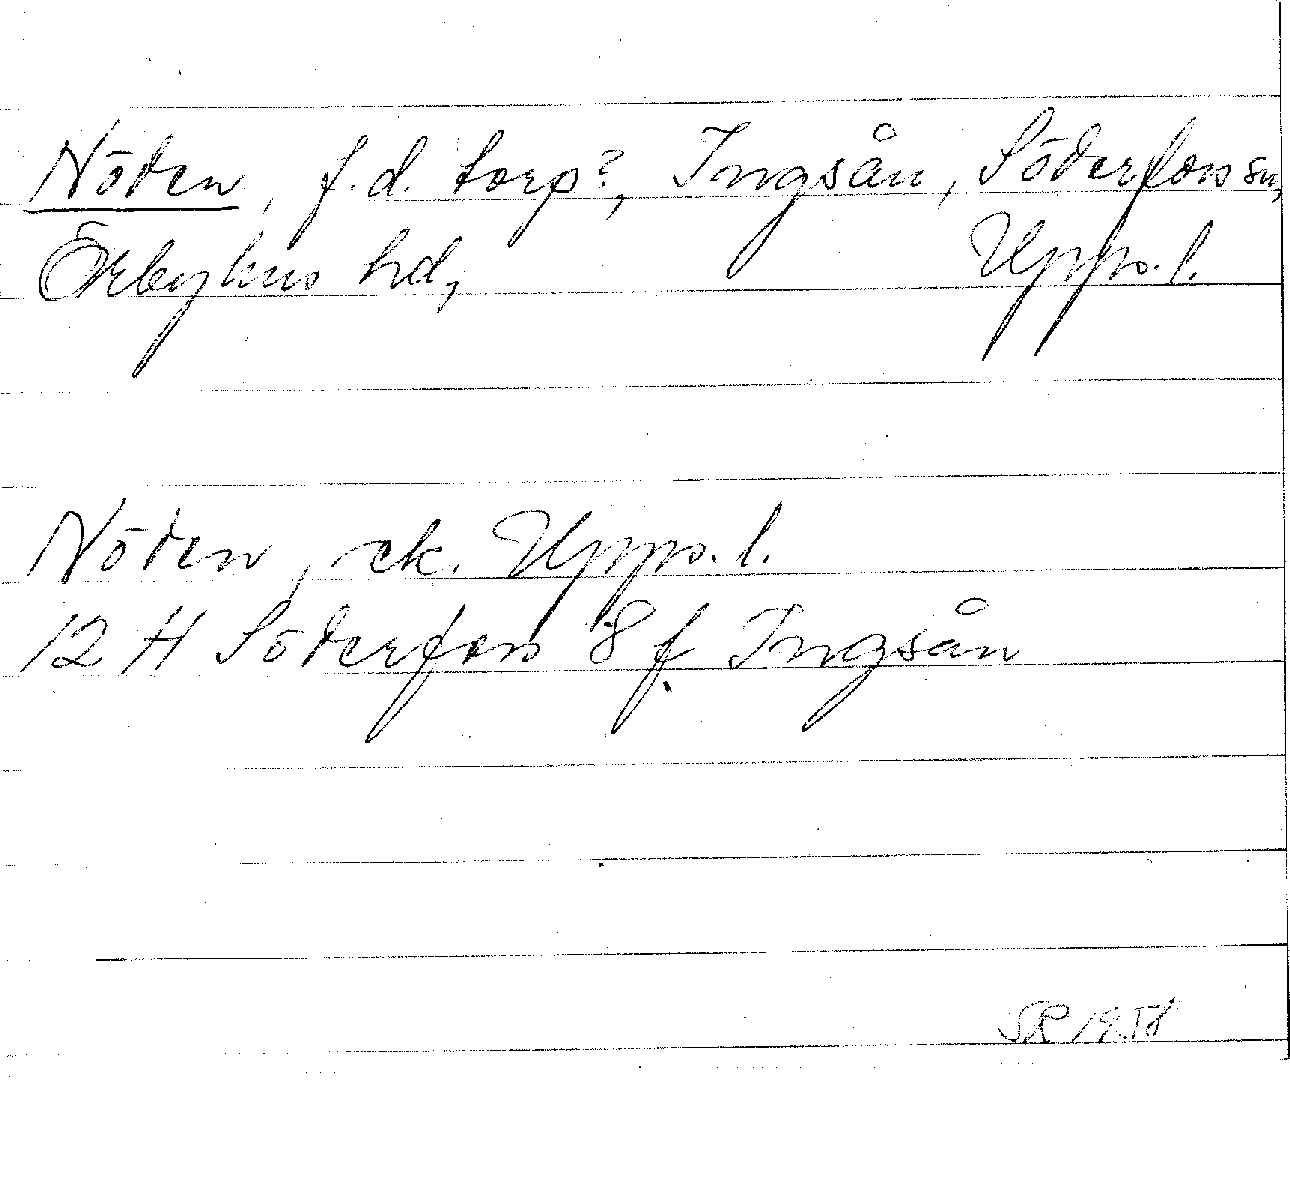 Nöden, f.d. torp?, Ingsån, Söderfors sn,
Örbyhus hd, Upps. l.
Nöden, ek. Upps. l.
12 H Söderfors 8 f Ingsån
SR 1958